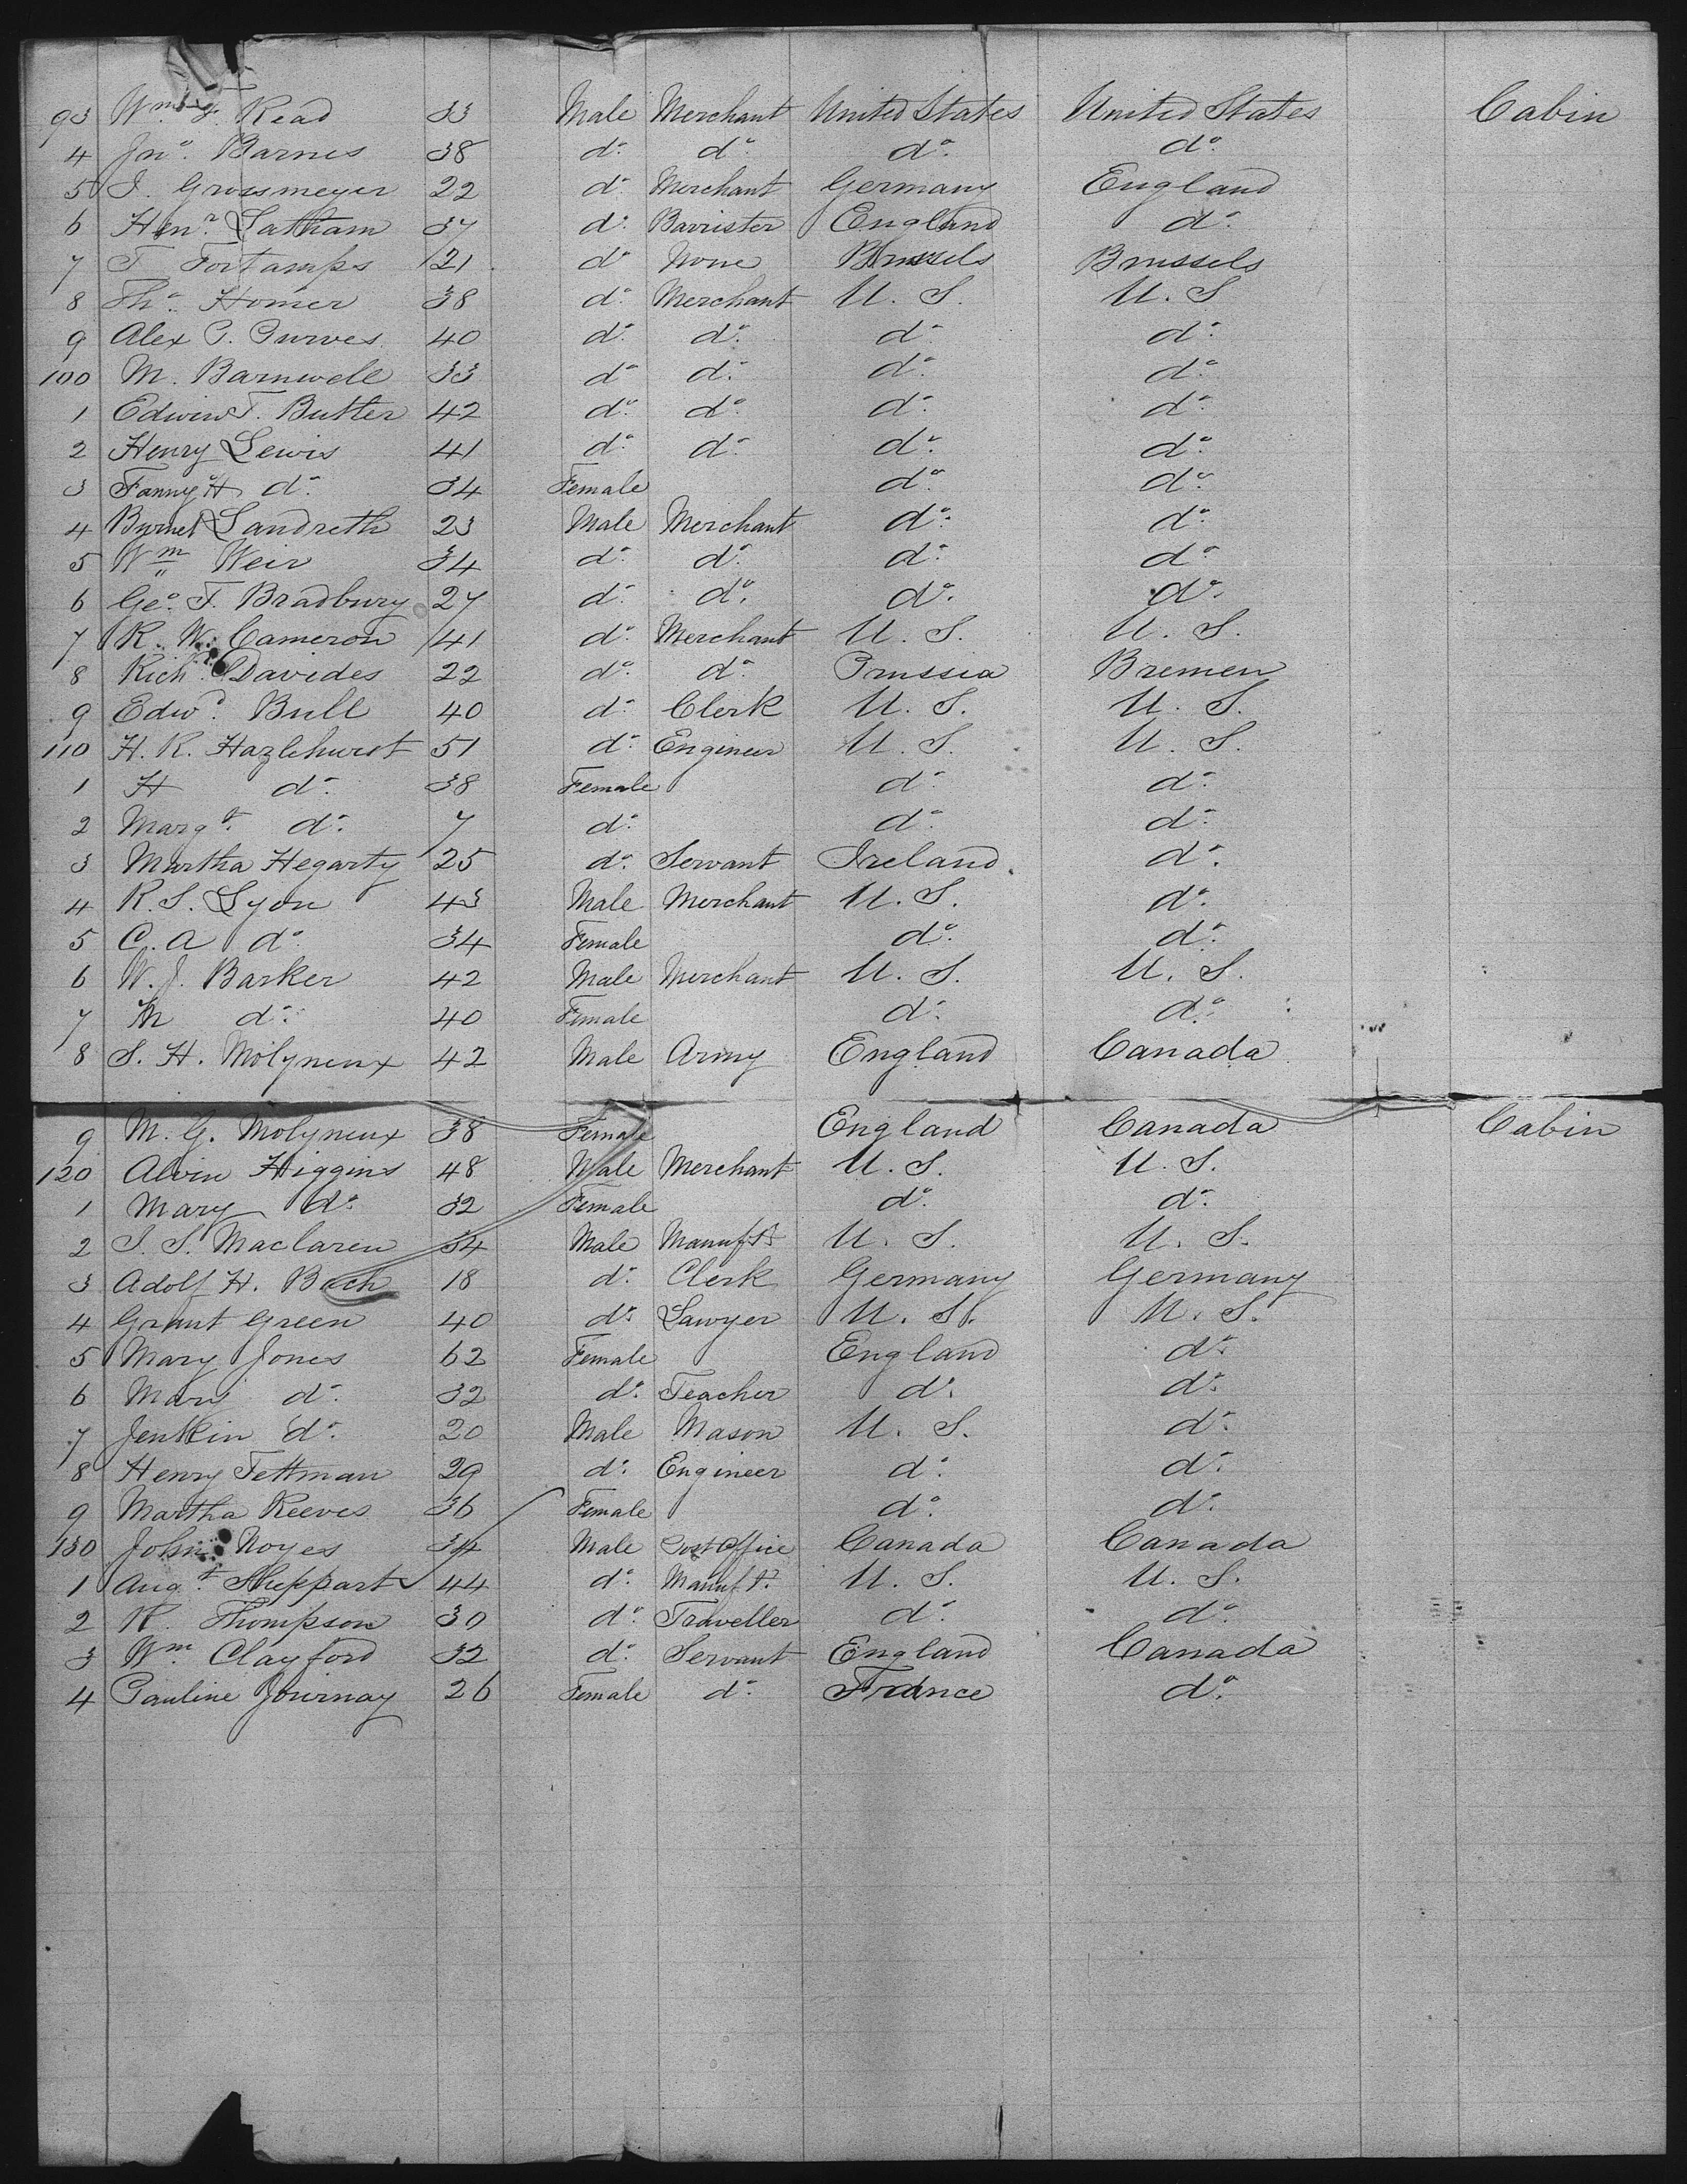 93 Wm. F. Read 33 Male Merchant United States United States Cabin
4 Jno. Barnes 38 do. do. do. do.
5 J. Grossmeyer 22 do. Merchant Germany England
6 Henr. Latham 37 do. Barrister England do.
7 T Fortamps 21 do. None Brussels Brussels
8 Tho. Homer 38 do. Merchant U. S. U. S
9 Alex P. Purves 40 do. do. do. do.
100 M. Barnwell 33 do. do. do. do.
1 Edwin T. Butler 42 do. do. do. do.
2 Henry Lewis 41 do. do. do. do.
3 Fanny H do. 34 Female do. do.
4 Burnet Landreth 23 Male Merchant do. do.
5 Wm Weir 34 do. do. do. do.
6 Geo. F. Bradbury 27 do. do. do. do.
7 R. W. Cameron 41 do. Merchant U. S. U. S.
8 Richd. Davides 22 do. do. Prussia Bremen
9 Edwd. Bull 40 do. Clerk U. S. U. S.
110 H. R. Hazlehurst 51 do. Engineer U. S. U. S.
1 H do. 38 Female do. do.
2 Margt. do. 7 do. do. do.
3 Martha Hegarty 25 do. Servant Ireland do.
4 R. S. Lyon 43 Male Merchant U. S. do.
5 C. A do. 34 Female do. do.
6 W. J. Barker 42 Male Merchant U. S. U. S.
7 M do. 40 Female do. do.
8 S. H. Molyneux 42 Male Army England Canada
9 M. G. Molyneux 38 Female England Canada Cabin
120 Alvin Higgins 48 Male Merchant U. S. U. S.
1 Mary do. 32 Female do. do.
2 S. S. Maclaren 34 Male Manufr. U. S. U. S.
3 Adolf H. Bach 18 do. Clerk Germany Germany
4 Grant Green 40 do. Lawyer U. S. U. S.
5 Mary Jones 62 Female England do.
6 Mary do. 32 do. Teacher do. do.
7 Jenkin do. 20 Male Mason U. S. do.
8 Henry Tettman 29 do. Engineer do. do.
9 Martha Reeves 36 Female do. do.
130 John Noyes 34 Male Post Office Canada Canada
1 Augt. Sheppart 44 do. Manufr. U. S. U. S.
2 R. Thompson 30 do. Traveller do. do.
3 Wm. Clayford 32 do. Servant England Canada
4 Pauline Journay 26 Female do. France do.